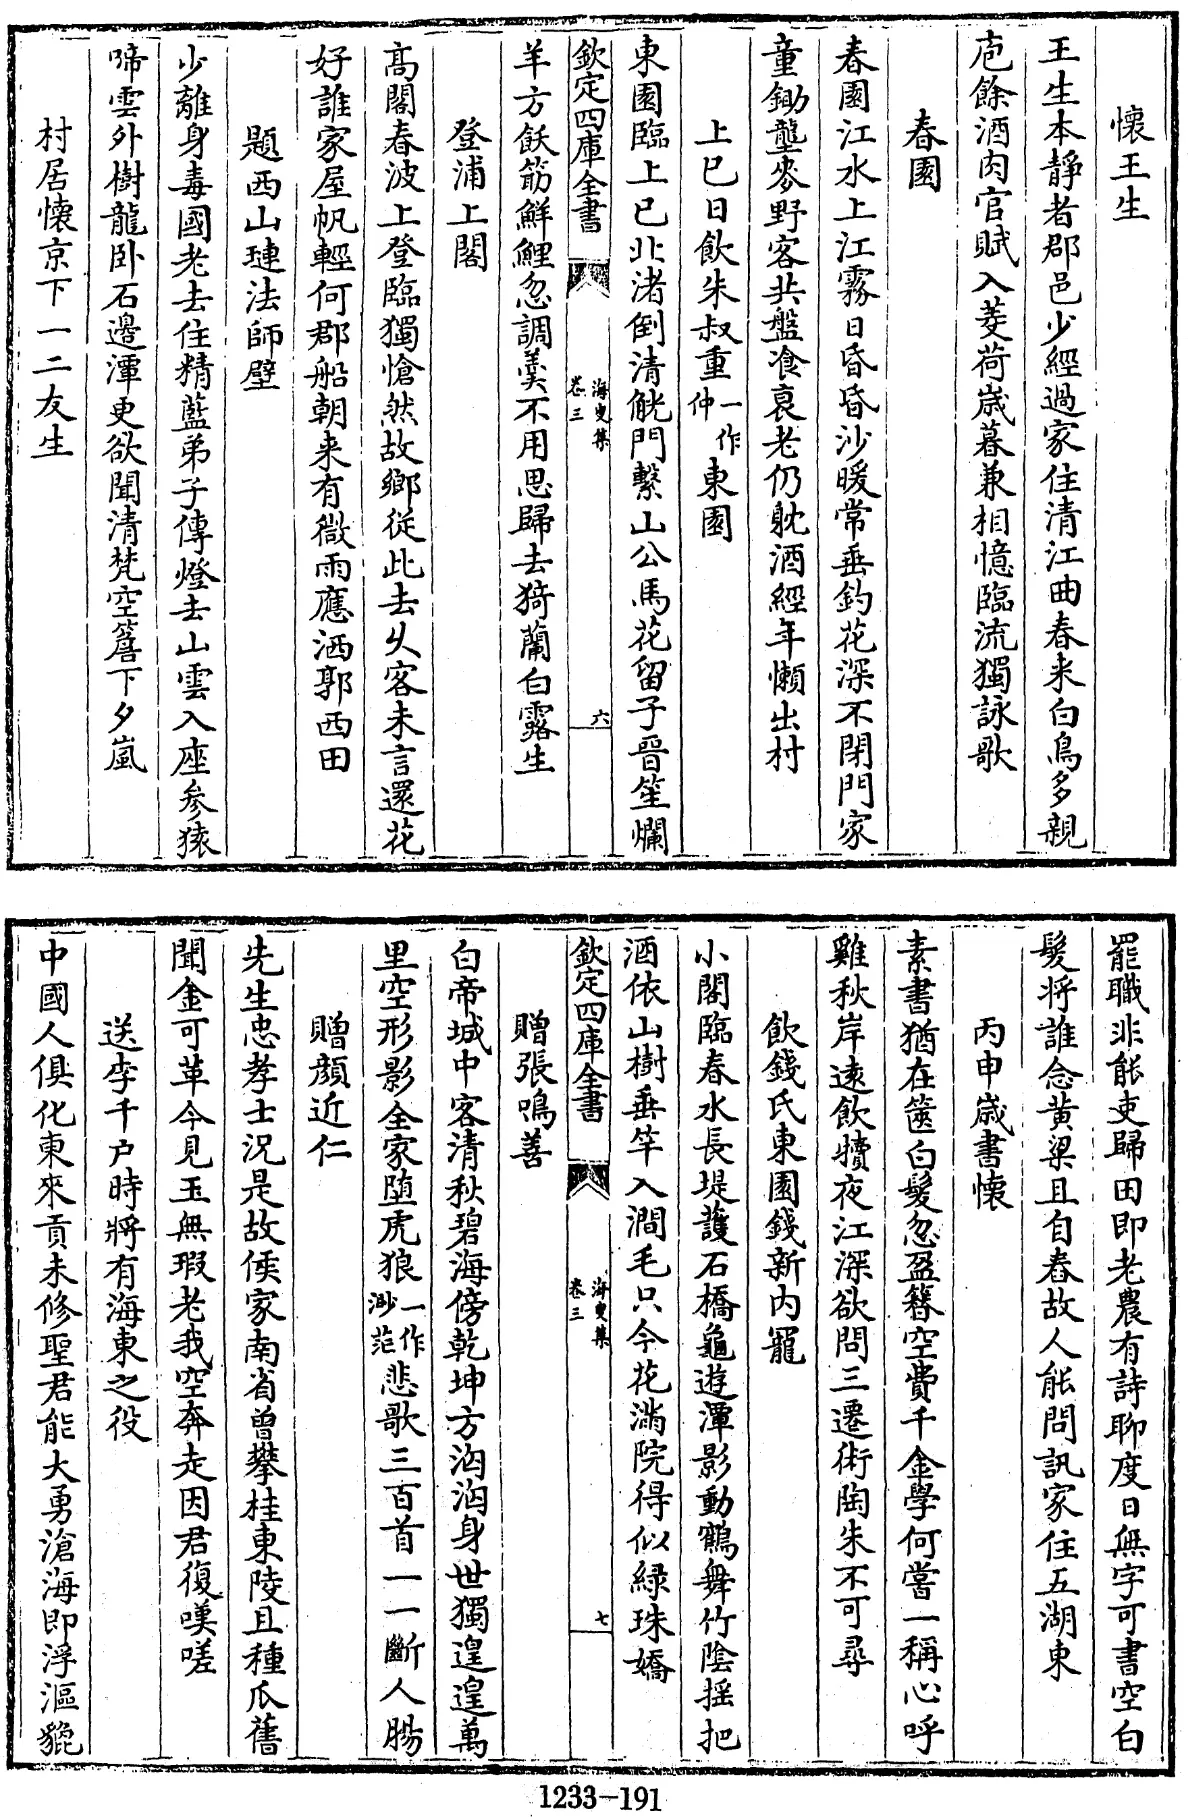 懷王生
王生本靜者郡邑少經過家住清江曲春来白鳥多親
庖餘酒肉官賦入菱荷歲暮兼相憶臨流獨詠歌
春園
春園江水上江霧日昏昏沙暖常垂釣花深不閉門家
童鋤壟麥野客共盤飡衰老仍躭酒經年懶出村
上巳日飲朱叔重一作仲東園
東園臨上巳北渚倒清觥門繫山公馬花留子晉笙爛
欽定四庫全書
海叟集
卷三
六
羊方飫筋鮮鯉忽調羹不用思歸去猗蘭白露生
登浦上閣
高閣春波上登臨獨愴然故鄉從此去乆客未言還花
好誰家屋帆輕何郡船朝来有微雨應洒郭西田
題西山璉法師壁
少離身毒國老去住精藍弟子傳燈去山雲入座参猿
啼雲外樹龍卧石邊潭更欲聞清梵空簷下夕嵐
村居懐京下一二友生
罷職非能吏歸田即老農有詩聊度日無字可書空白
髮将誰念黄粱且自舂故人能問訊家住五湖東
丙申歲書懷
素書猶在篋白髪忽盈簪空費千金學何嘗一稱心呼
雞秋岸逺飲犢夜江深欲問三遷術陶朱不可尋
飲錢氏東園錢新内寵
小閣臨春水長堤護石橋龜遊潭影動鶴舞竹陰摇把
酒依山樹垂竿入澗毛只今花滿院得似緑珠嬌
欽定四庫全書
海叟集
卷三
七
贈張鳴善
白帝城中客清秋碧海傍乾坤方洶洶身世獨遑遑萬
里空形影全家堕虎狼一作渺茫悲歌三百首一一斷人腸
贈顔近仁
先生忠孝士况是故侯家南省曾攀桂東陵且種瓜舊
聞金可革今見玉無瑕老我空奔走因君復嘆嗟
送李千户時將有海東之役
中國人俱化東來貢未修聖君能大勇滄海即浮漚貔
1233-191